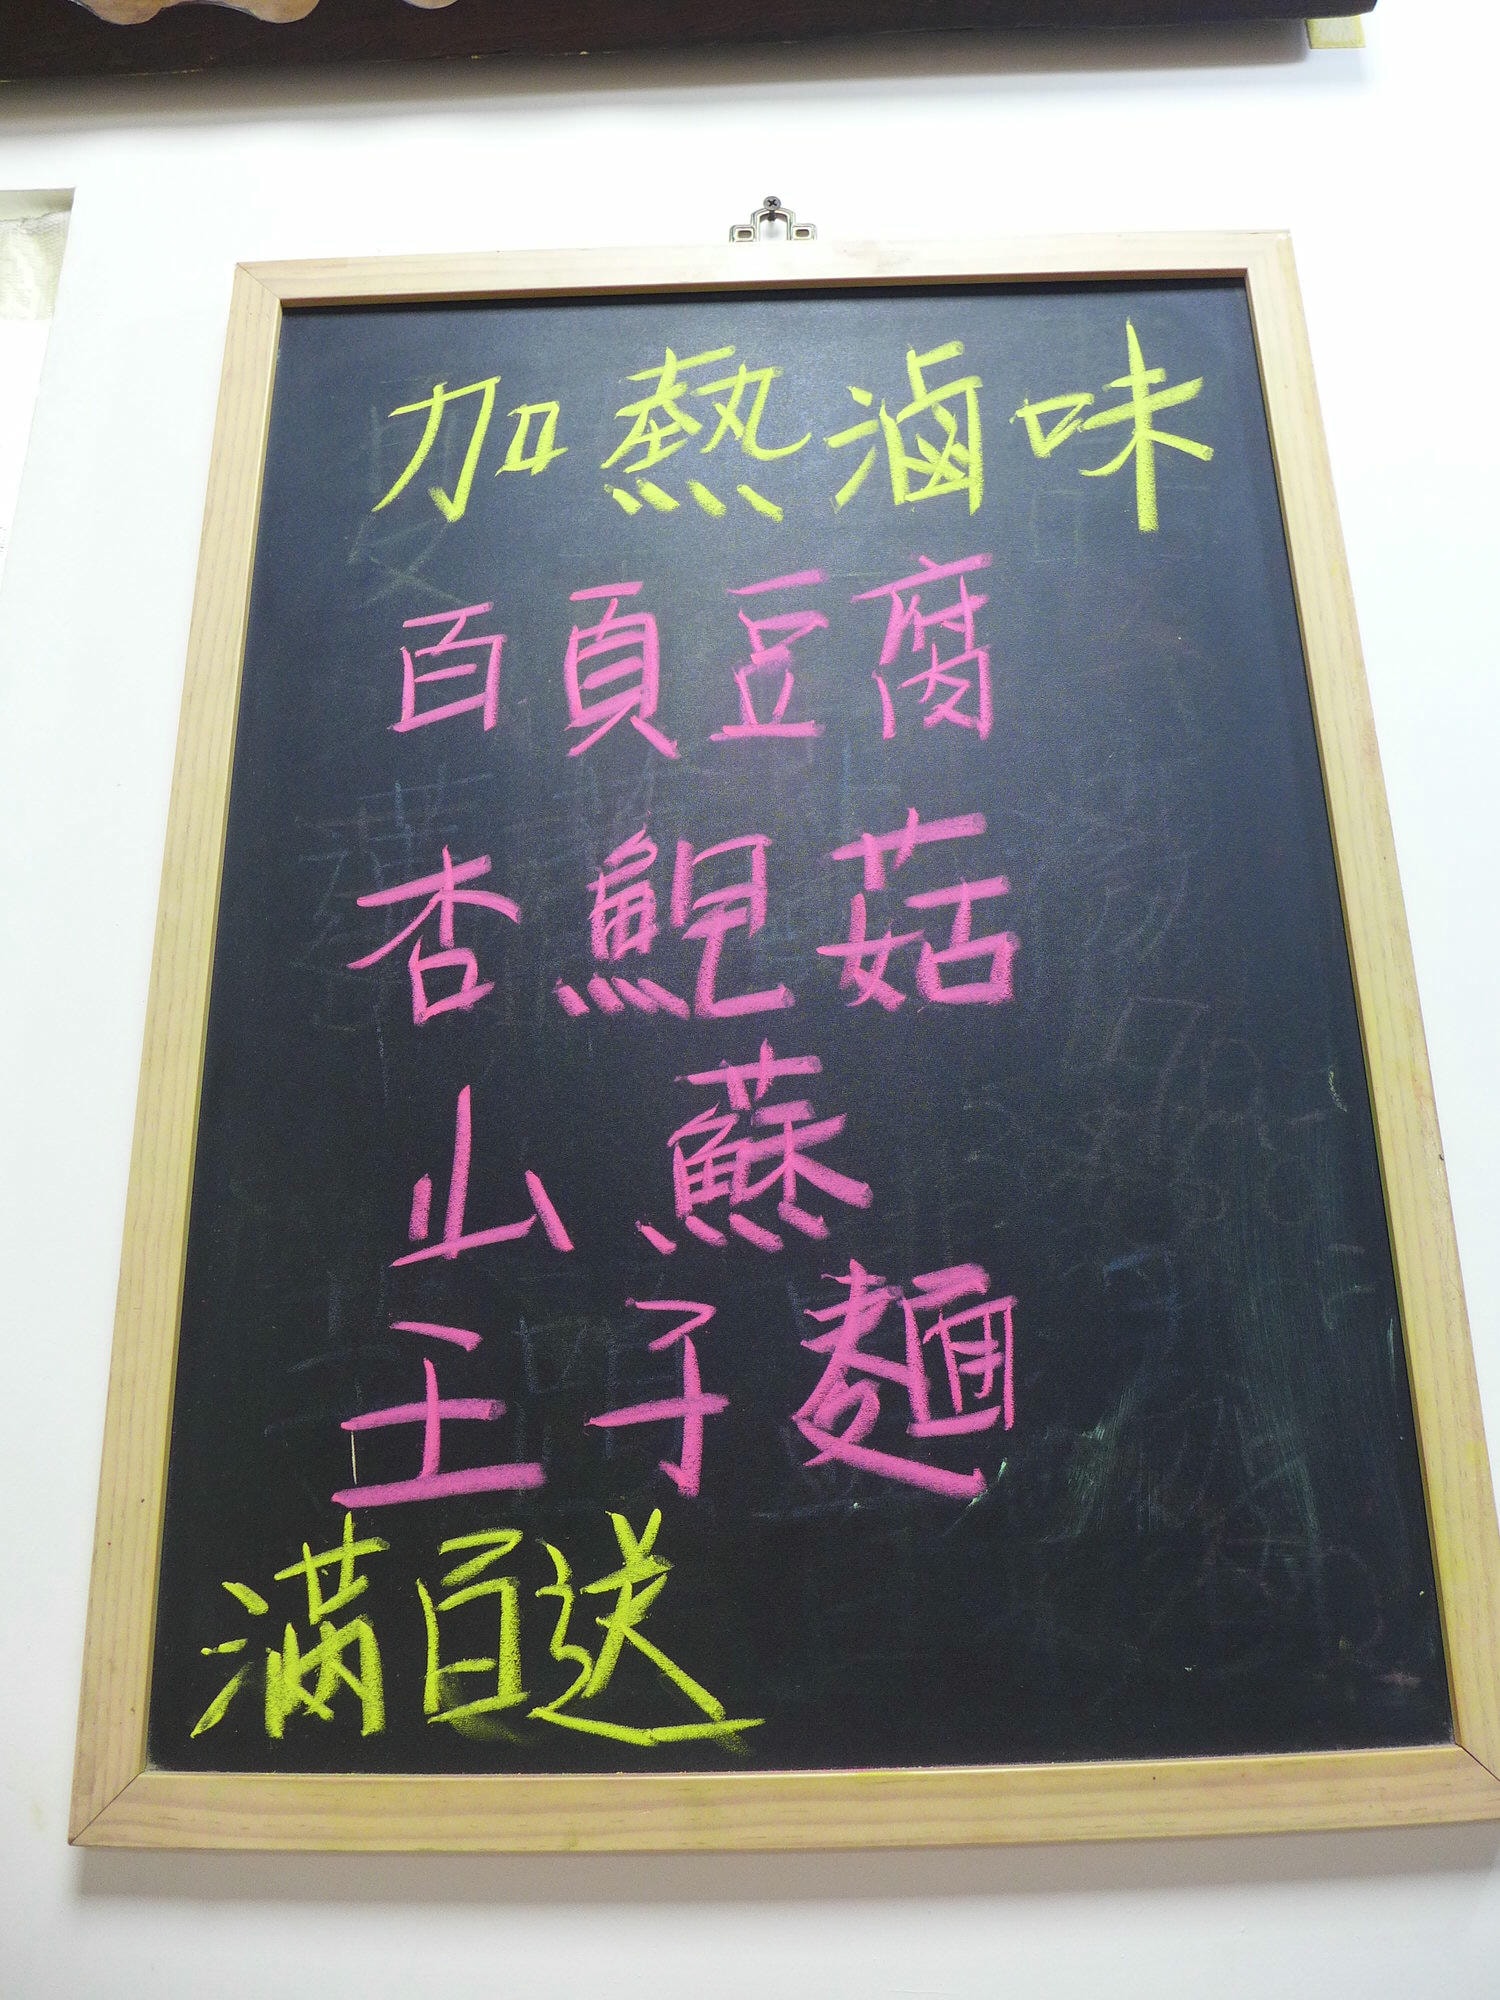 加熱滷味
百頁豆腐
杏鮑菇
山蘇
王子麵
滿百送